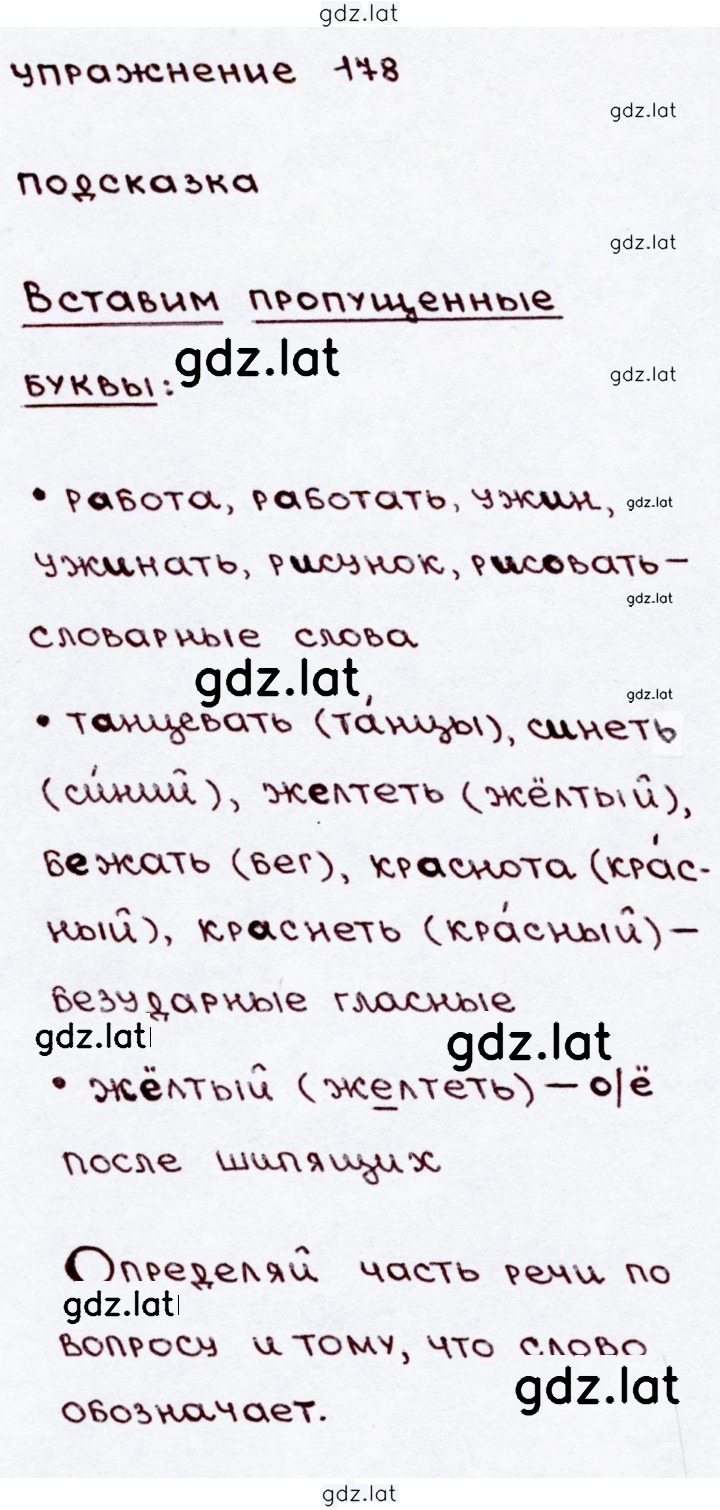 gdz.lat
упражнение 178
gdz.lat
подсказка
gdz.lat
Вставим пропущенные
gdz.lat
буквы:
gdz.lat
• работа, работать, ужин,
gdz.lat
ужинать, рисунок, рисовать–
gdz.lat
словарные слова
gdz.lat
gdz.lat
• танцевать (та́нцы), синеть
(си́ний), желтеть (жёлтый),
бежать (бег), краснота (кра́с-
ный), краснеть (кра́сный) –
безударные гласные
gdz.lat
gdz.lat
• жёлтый (желтеть) – о/ё
после шипящих
Определяй часть речи по
gdz.lat
вопросу и тому, что слово
gdz.lat
обозначает.
gdz.lat